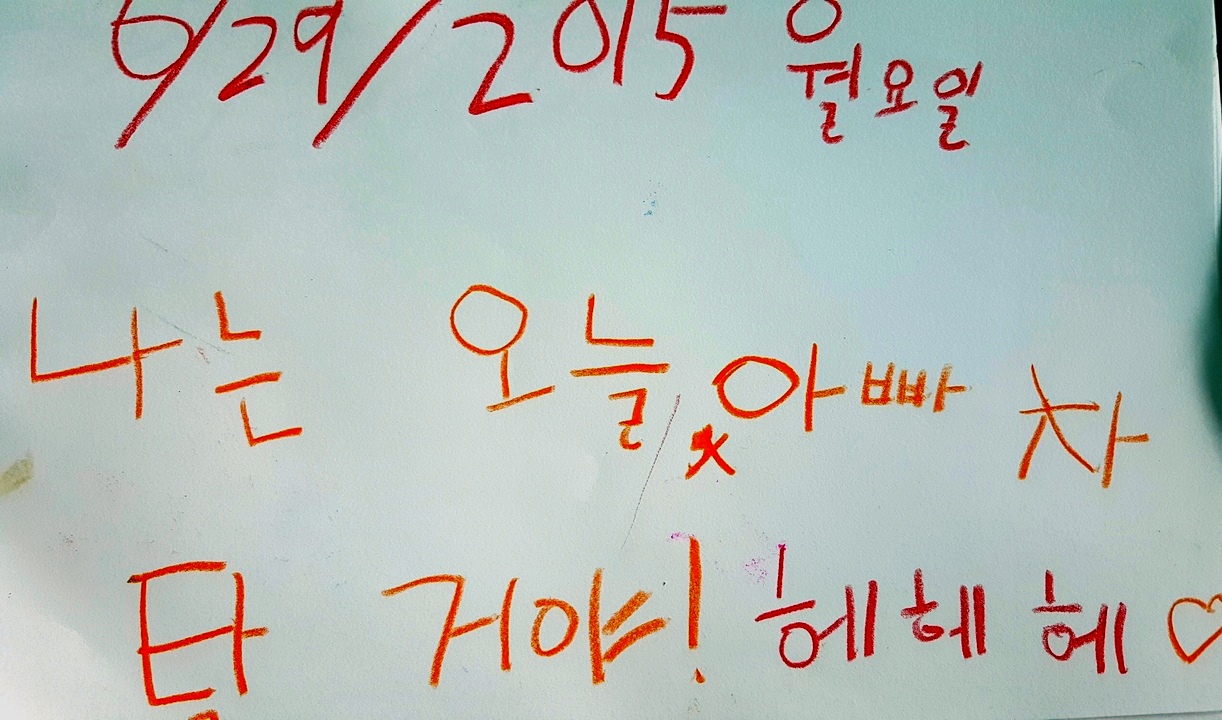 6/29/2015 월요일
나는 오늘 아빠 차
탈 거야! 헤헤 헤♡